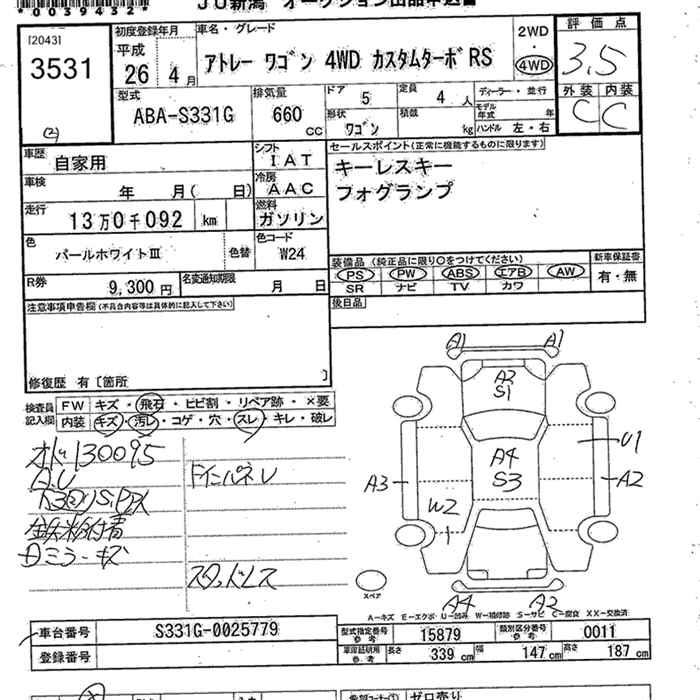 *0039432*
JU新潟 オークション出品申込書
[2043]
3531
(2)
初度登録年月
平成
26 4月
車名・グレード
アトレー ワゴン 4WD カスタムターボRS
2WD
・
4WD
評価点
3.5
外装 内装
C C
型式
ABA-S331G
排気量
660
CC
ドア
5
定員
4 人
形状
ワゴン
積載
kg
ディーラー・並行
モデル年式
年
ハンドル 左・右
車歴
自家用
シフト
I A T
車検
年 月( 日)
冷房
A A C
走行
13万0千092 km
燃料
ガソリン
色
パールホワイトⅢ
色替
色コード
W24
R券
9,300 円
名変通知期限
月 日
セールスポイント(正常に機能するものに限ります)
キーレスキー
フォグランプ
装備品(純正品に限り○をつけてください)
PS PW ABS エアB AW
SR ナビ TV カワ
新車保証書
有・無
後日品
注意事項申告欄(不具合内容等は具体的に記入して下さい)
修復歴 有〔箇所 〕
検査員記入欄
FW キズ・飛石・ヒビ割・リペア跡・×要
内装 キズ・汚レ・コゲ・穴・スレ・キレ・破レ
130095
鉄粉付着
ドミラーキズ
スタッドレス
A1 A1
A2
S1
A4
S3
U1
A3
A2
W2
A4 A2
スペア
A－キズ E－エクボ U－凹み W－補修跡 S－サビ C－腐食 XX－交換済
車台番号
S331G-0025779
登録番号
型式指定番号
参考
15879
類別区分番号
参考
0011
車庫証明用
参考
長さ 339 cm 幅 147 cm 高さ 187 cm
ゼロ売り